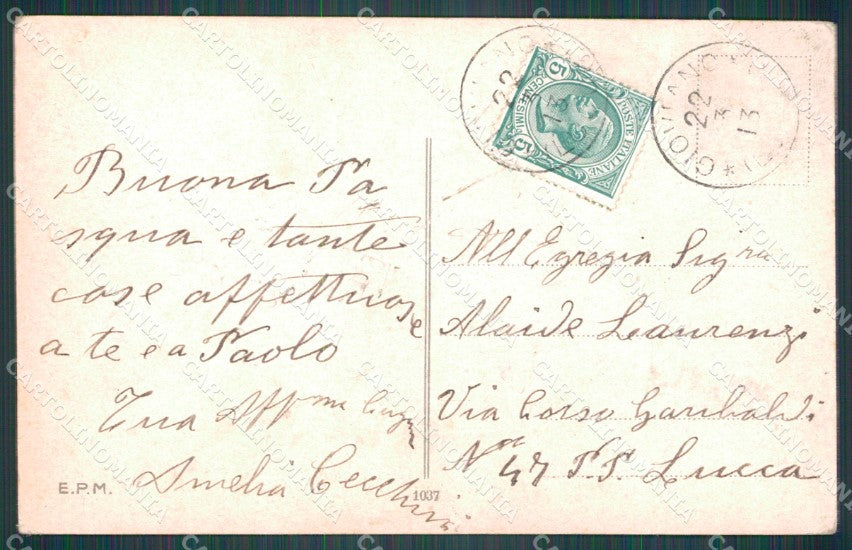 Buona Pa
squa e tante
cose affettuose
a te e a Paolo
Tua Aff.ma Cugina
Amelia Cecchini
E.P.M.
1037
5 CENTESIMI 5
POSTE ITALIANE
22
3
13
GIOVIANO
22
3
13
All'Egregia Sigra
Alaide Laurenzi
Via Corso Garibaldi
No 47 P.P. Lucca
CARTOLINOMANIA